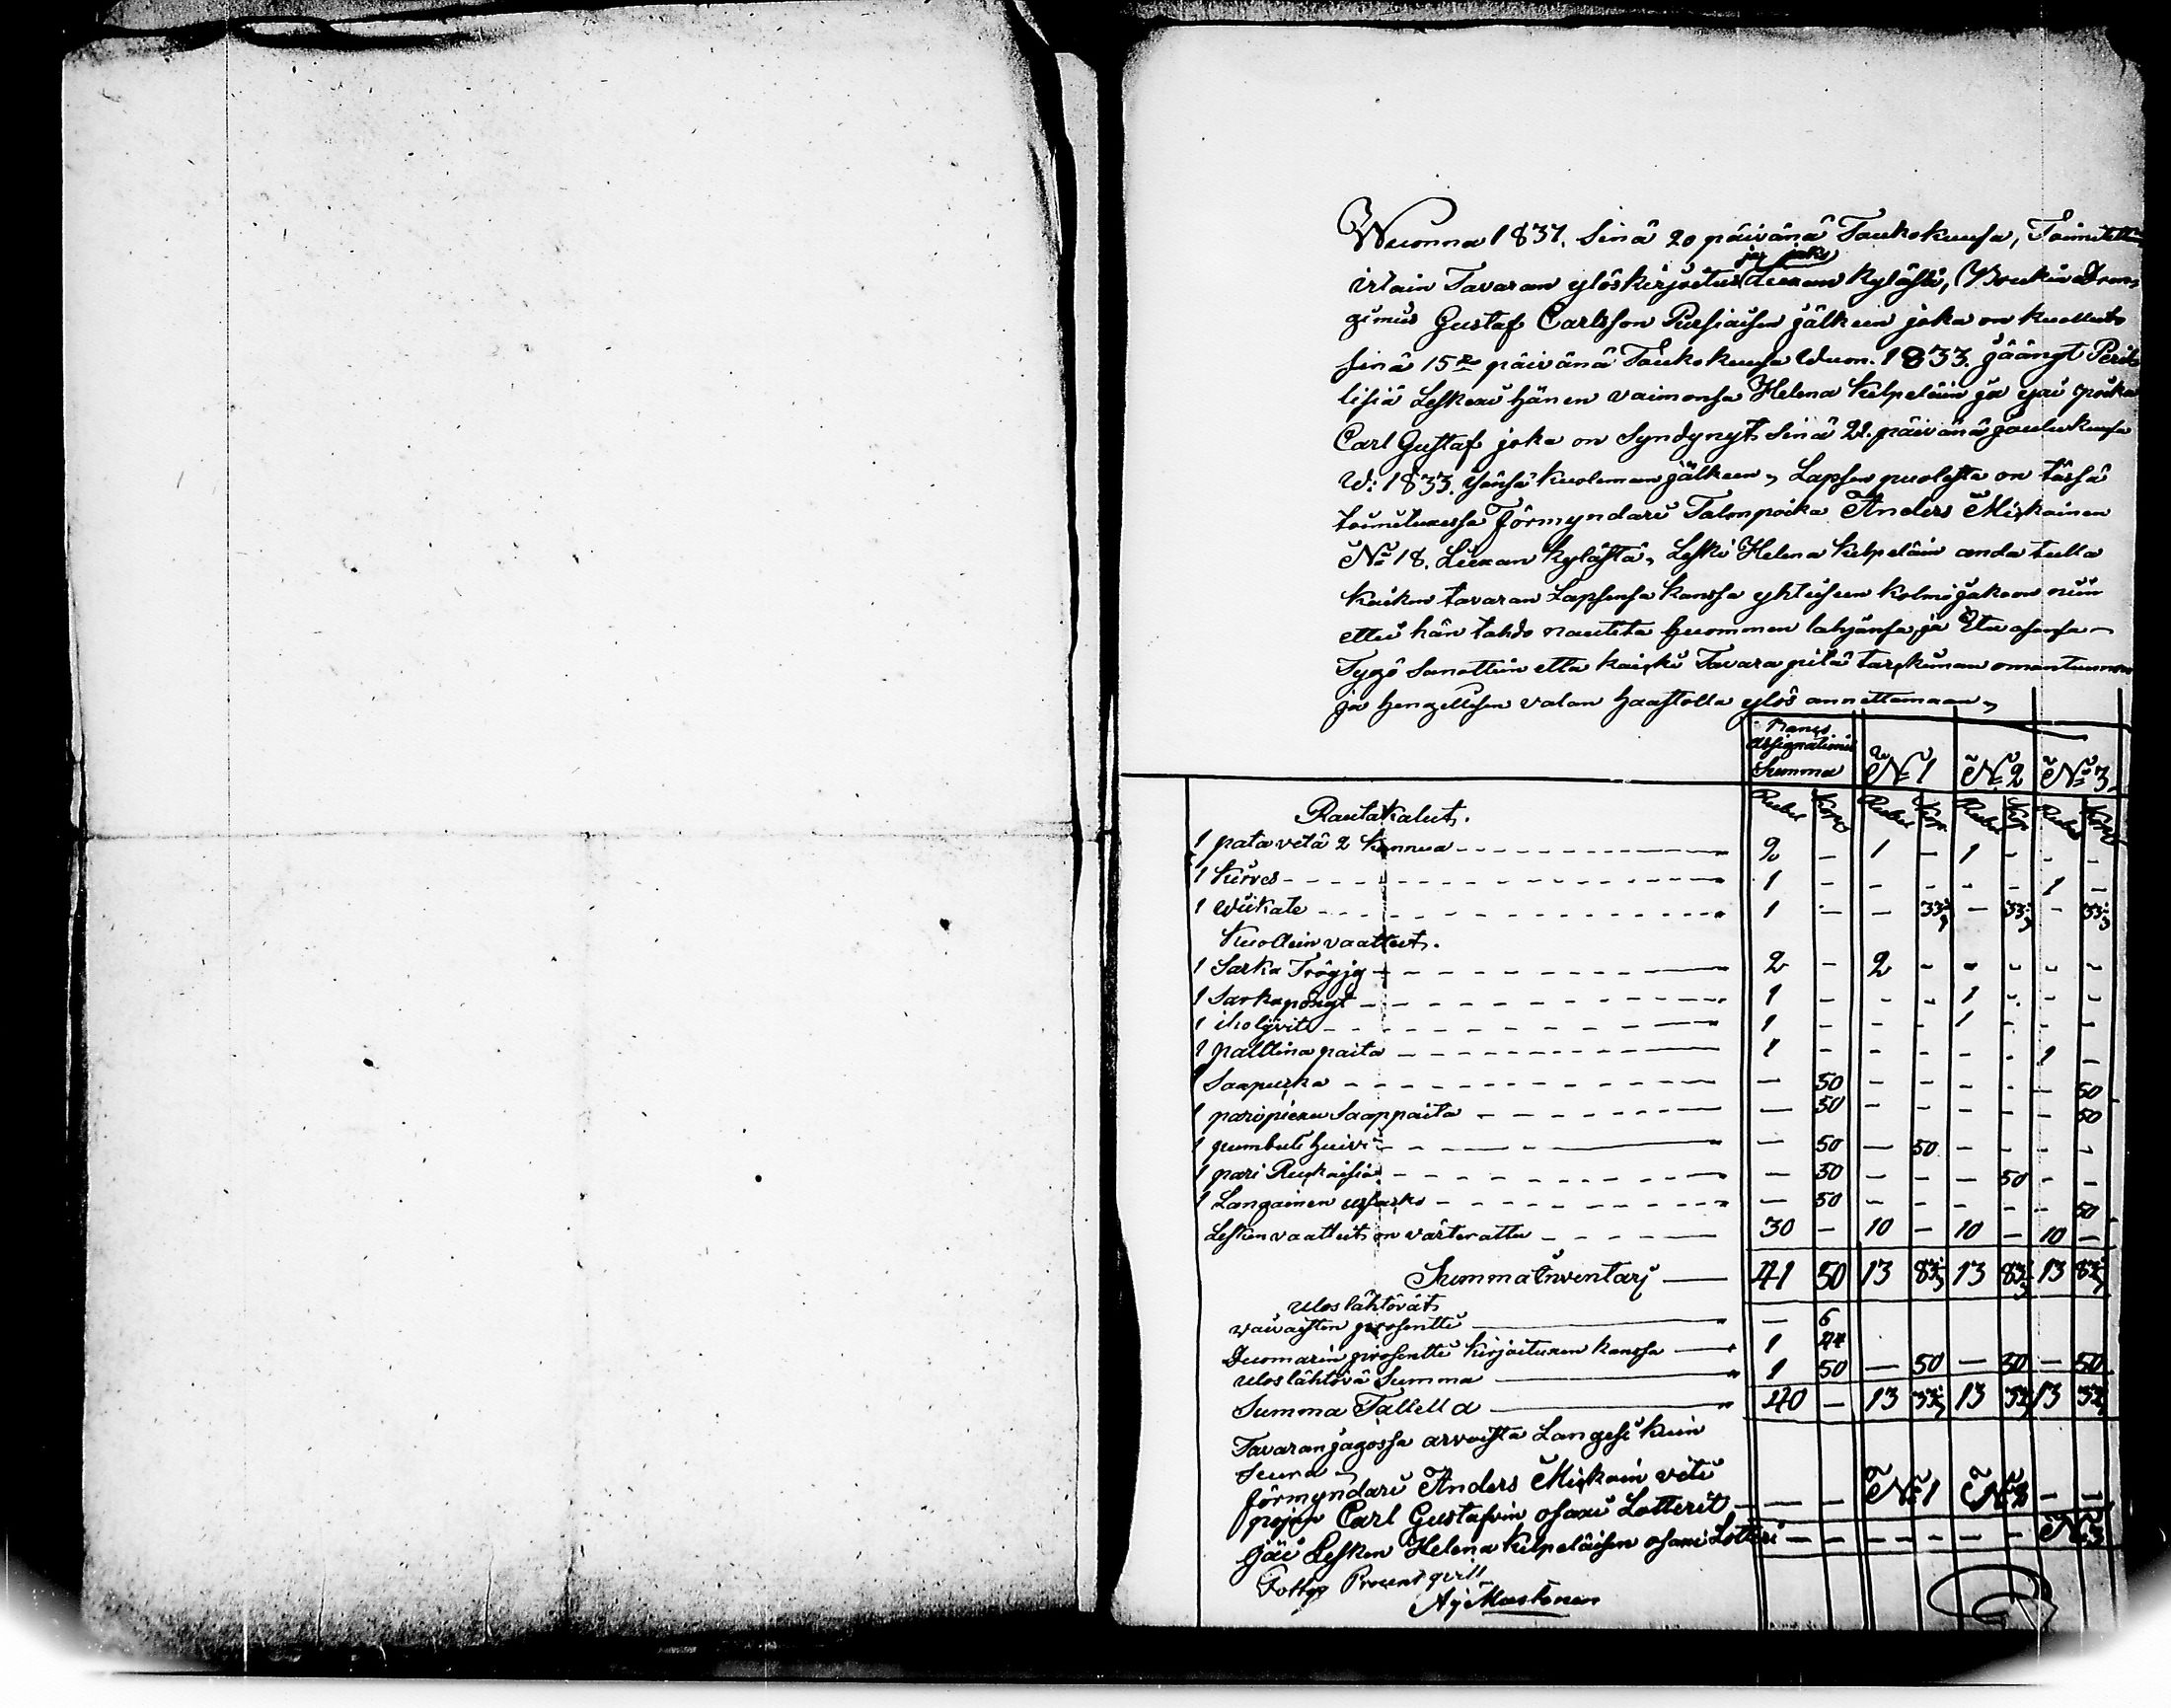 Wuonna 1837. Sinä 20 päivänä Toukokuusa, Toimitettin
ja jako
irtain Tavaran ylöskirjoitus Liexan Kylässä,
Gustaf Carlsson Pursiaisen jälkeen joka on kuollut
sinä 15 päivänä Toukokuusa Wuon. 1833. jäänyt Peril
lisiä Leskexi hänen vaimonsa Helena Kilpeläin ja yxi poika
Carl Gustaf joka on Syndynyt Sinä 21. päivänä jouluKuusa
W: 1833. Isänsä Kuoleman jälkeen, Lapsen puolesta on tässä
toimituxessa Förmyndäri Talonpoika Anders Mixkainen
No 18. Liexan kylästä, Leski Helena Kilpeläin anda tulla
Kaiken tavaran Lapsensa Kanssa yhteiseen Kolmijakoon niin
ettei hän tahdo nautita huommen lahjansa ja Etu osansa
Tygö Sanottiin että kaicki Tavara pitä tarckiman omantunnon
ja hengellisen valan haastolla ylös annettaman,
Banco
Assignationis
Summa No 1 No 2 No 3
Rubel Kop Rubel Kop Rubel Kop Rubel Kop
RautaKalut.
1 pata vetä 2 Kannua 2 - 1 - 1 - - -
1 Kirves 1 - - - - - 1 -
1 Wiikate 1 - - 33⅓ - 33⅓ - 33⅓
Kuollein vaatteet.
1 Sarka Tröyjy 2 - 2 - - - - -
1 Sarkapöxyt 1 - - - 1 - - -
1 iho liivit 1 - - - 1 - - -
1 palttina paita 1 - - - - - 1 -
1 Saapuska - 50 - - - - - 50
1 pari piexu Saappaita - 50 - - - - - 50
1 pumbuli huivi - 50 - 50 - - - -
1 pari Ruckaisia - 50 - - - 50 - -
1 Langainen - 50 - - - - - 50
Lesken vaatteet on värterattu 30 - 10 - 10 - 10 -
Summa Inventarj 41 50 13 83⅓ 13 83⅓ 13 83⅓
Ulos lähtövät
vaivaisten prosentti - 6
Duomarin prosentti Kirjoituxen kanssa 1 44
Ulos lähtövä Summa 1 50 - 50 - 50 - 50
Summa Tallella 40 - 13 33⅓ 13 33⅓ 13 33⅓
Tavaran jagossa arvoista Langesi Kuin
Seura
förmyndäri Anders Mixkain veti
pojan Carl Gustafvin osaxi Lotterit - - No 1 No 2 - -
jäi Lesken Helena Kilpeläisen osaxi Lotteri - - - - - - No 3